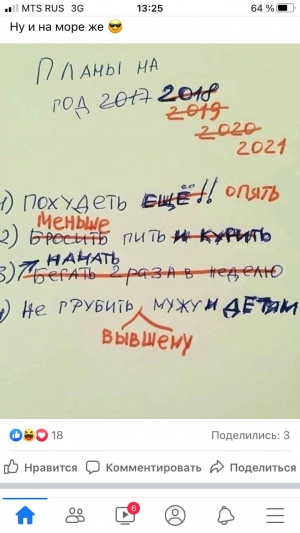 MTS RUS 3G 13:25 64 %
Ну и на море же 😎
Планы на
год 2017 2018
2019
2020
2021
1) Похудеть ещё!! опять
меньше
2) Бросить пить и курить
начать
3) Бегать 2 раза в неделю
4) Не грубить мужу и детям
бывшему
18 Поделились: 3
Нравится Комментировать Поделиться
6